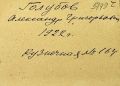 Голубов
Александр Григорьевич
1922г.
Кузнечная № 164